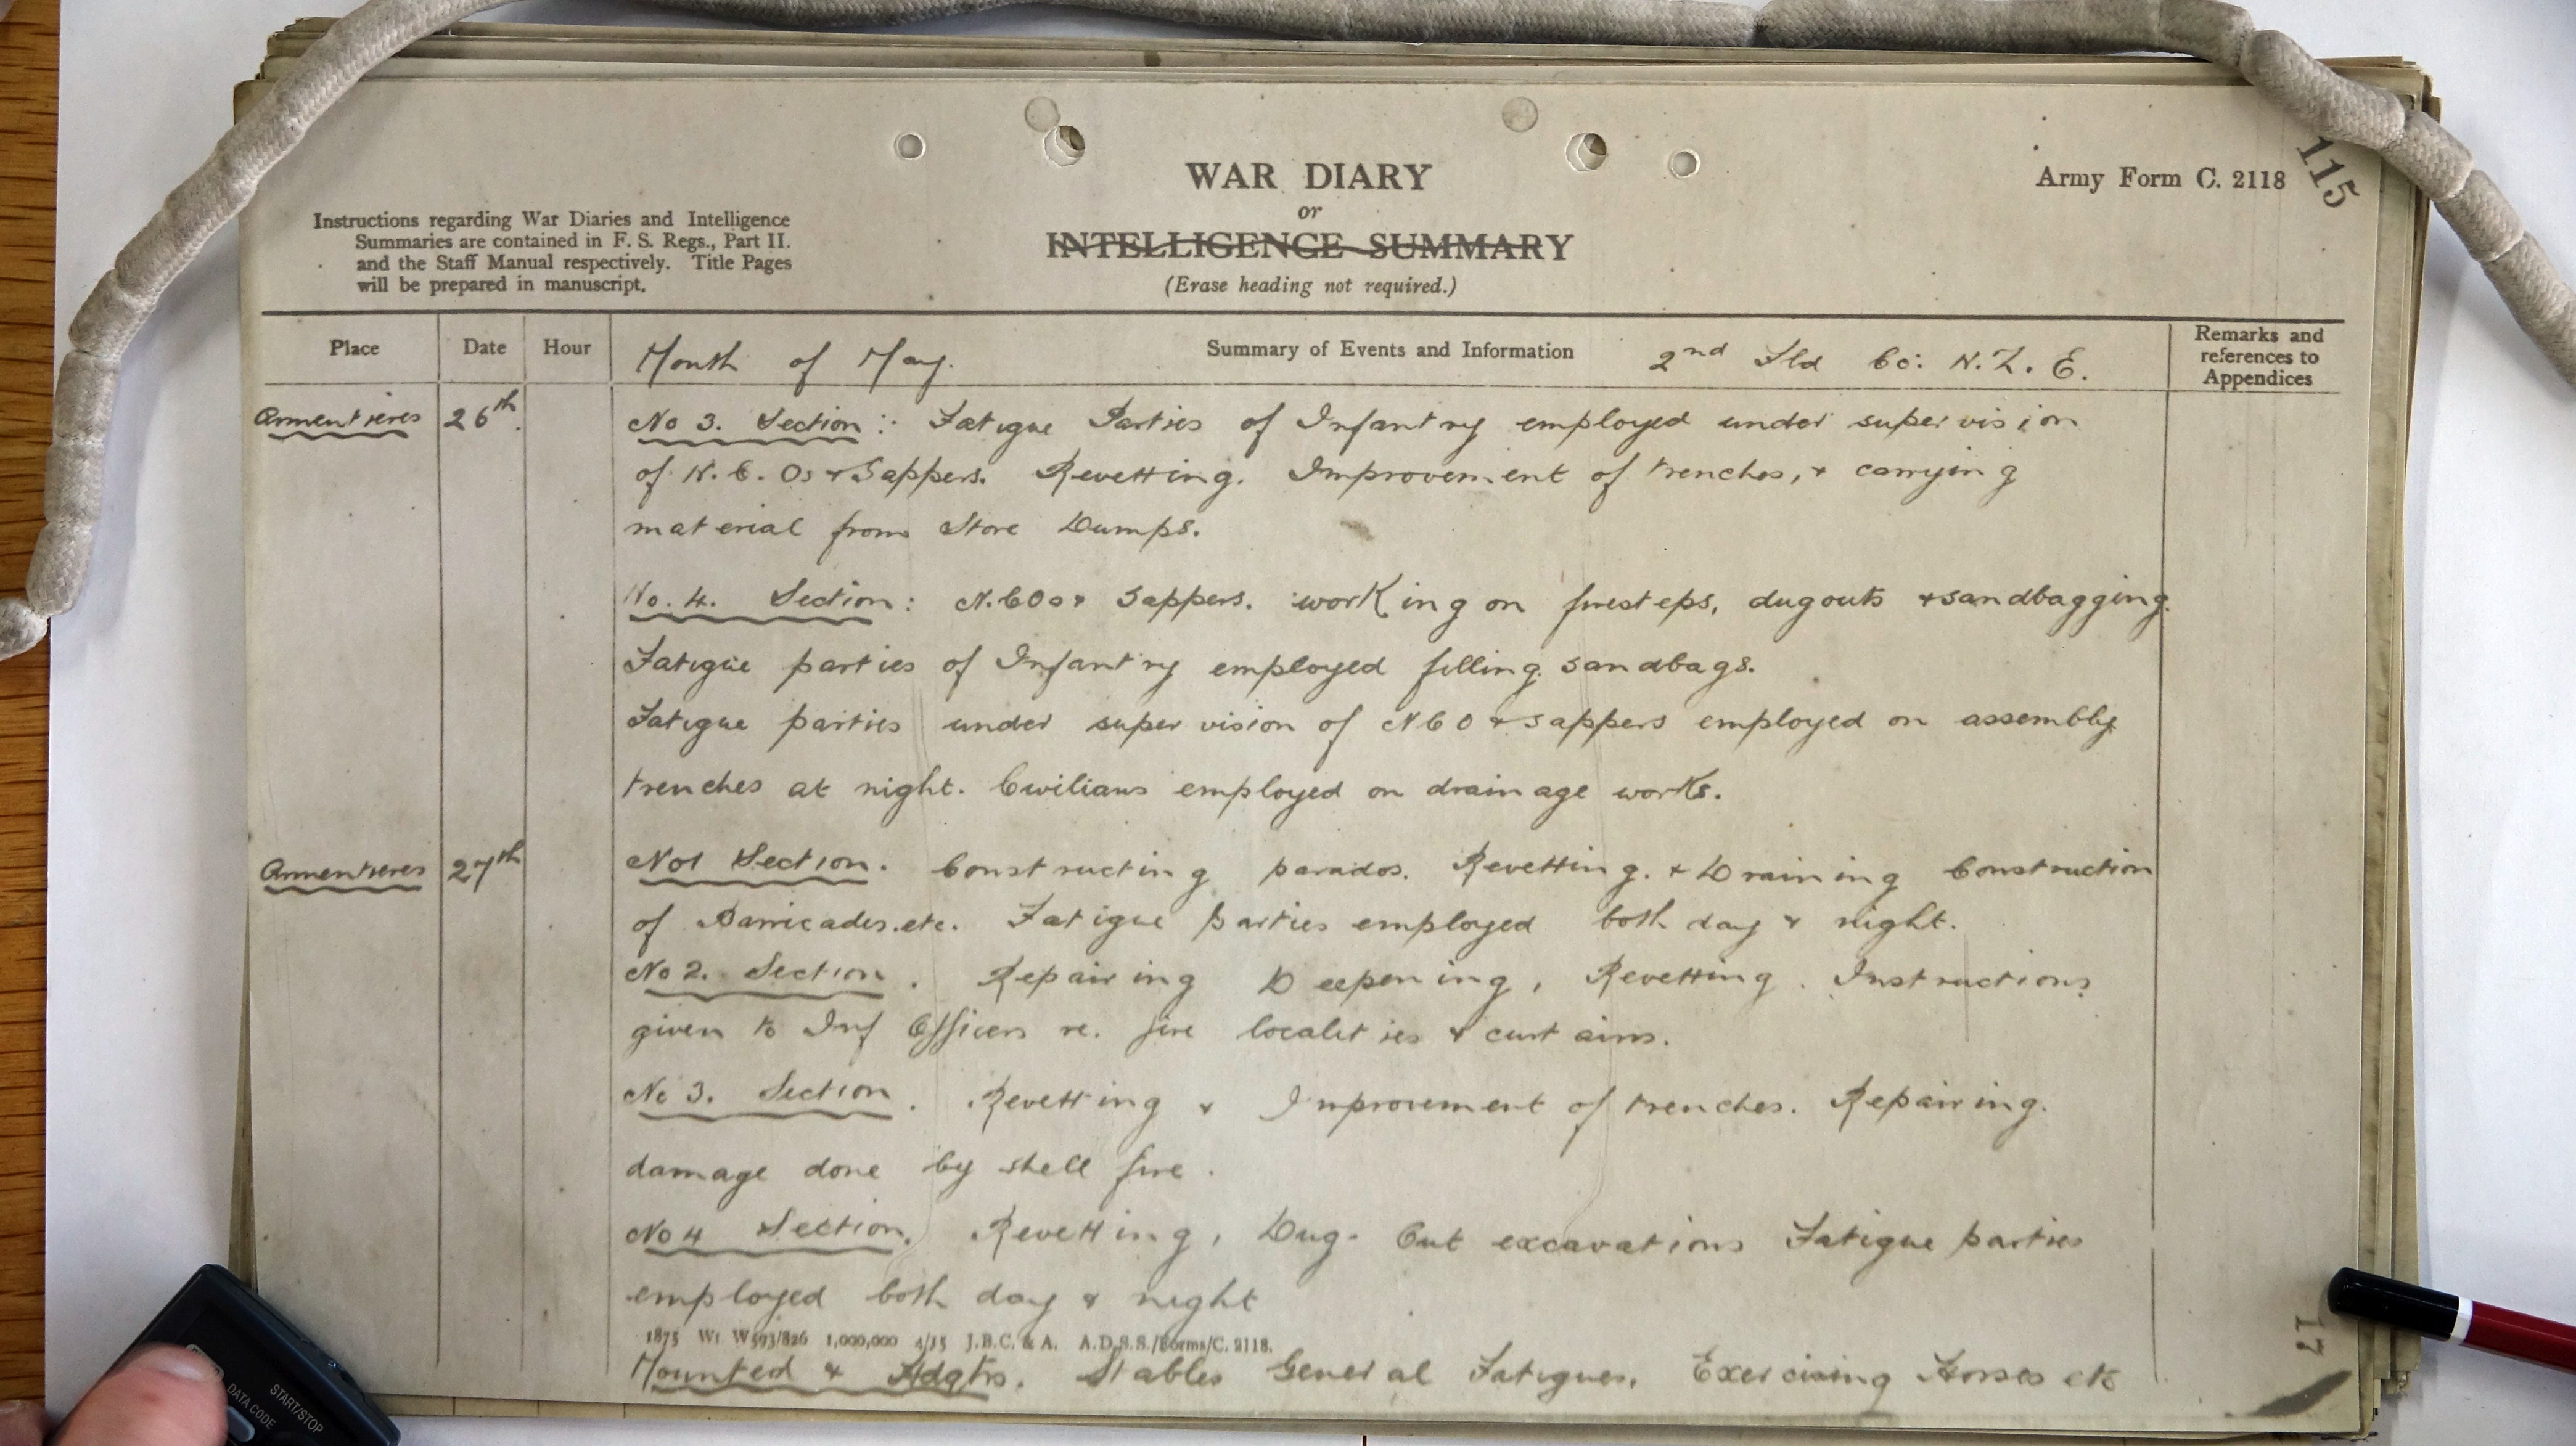 115
WAR DIARY
or
INTELLIGENCE SUMMARY
(Erase heading not required.)
Army Form C. 2118
Instructions regarding War Diaries and Intelligence
Summaries are contained in F. S. Regs., Part II.
and the Staff Manual respectively. Title Pages
will be prepared in manuscript.
Place Date Hour Month of May. Summary of Events and Information 2nd Fld Co: N.Z.E. Remarks and
references to
Appendices
Armentieres 26th. No 3. Section: Fatigue Parties of Infantry employed under supervision
of N.C.Os & Sappers. Revetting. Improvement of trenches, & carrying
material from Store Dumps.
No. 4. Section: N.COs & Sappers. working on firesteps, dugouts & sandbagging.
Fatigue parties of Infantry employed filling sandbags.
Fatigue parties under supervision of NCO & Sappers employed on assembly
trenches at night. Civilians employed on drainage works.
Armentieres 27th No1 Section. Constructing parados. Revetting. & Draining Construction
of Barricades.etc. Fatigue parties employed both day & night.
No 2. Section. Repairing Deepening, Revetting. Instructions
given to Inf Officers re. fire localities & curtains.
No 3. Section. Revetting & Improvement of trenches. Repairing.
damage done by shell fire.
No 4 Section. Revetting, Dug-Out excavations Fatigue parties
employed both day & night
1875 Wt W593/826 1,000,000 4/15 J.B.C. & A. A.D.S.S./Forms/C. 2118.
Mounted & Hdqtrs. Stables General Fatigues. Exercising Horses etc
17
DATA CODE
START/STOP